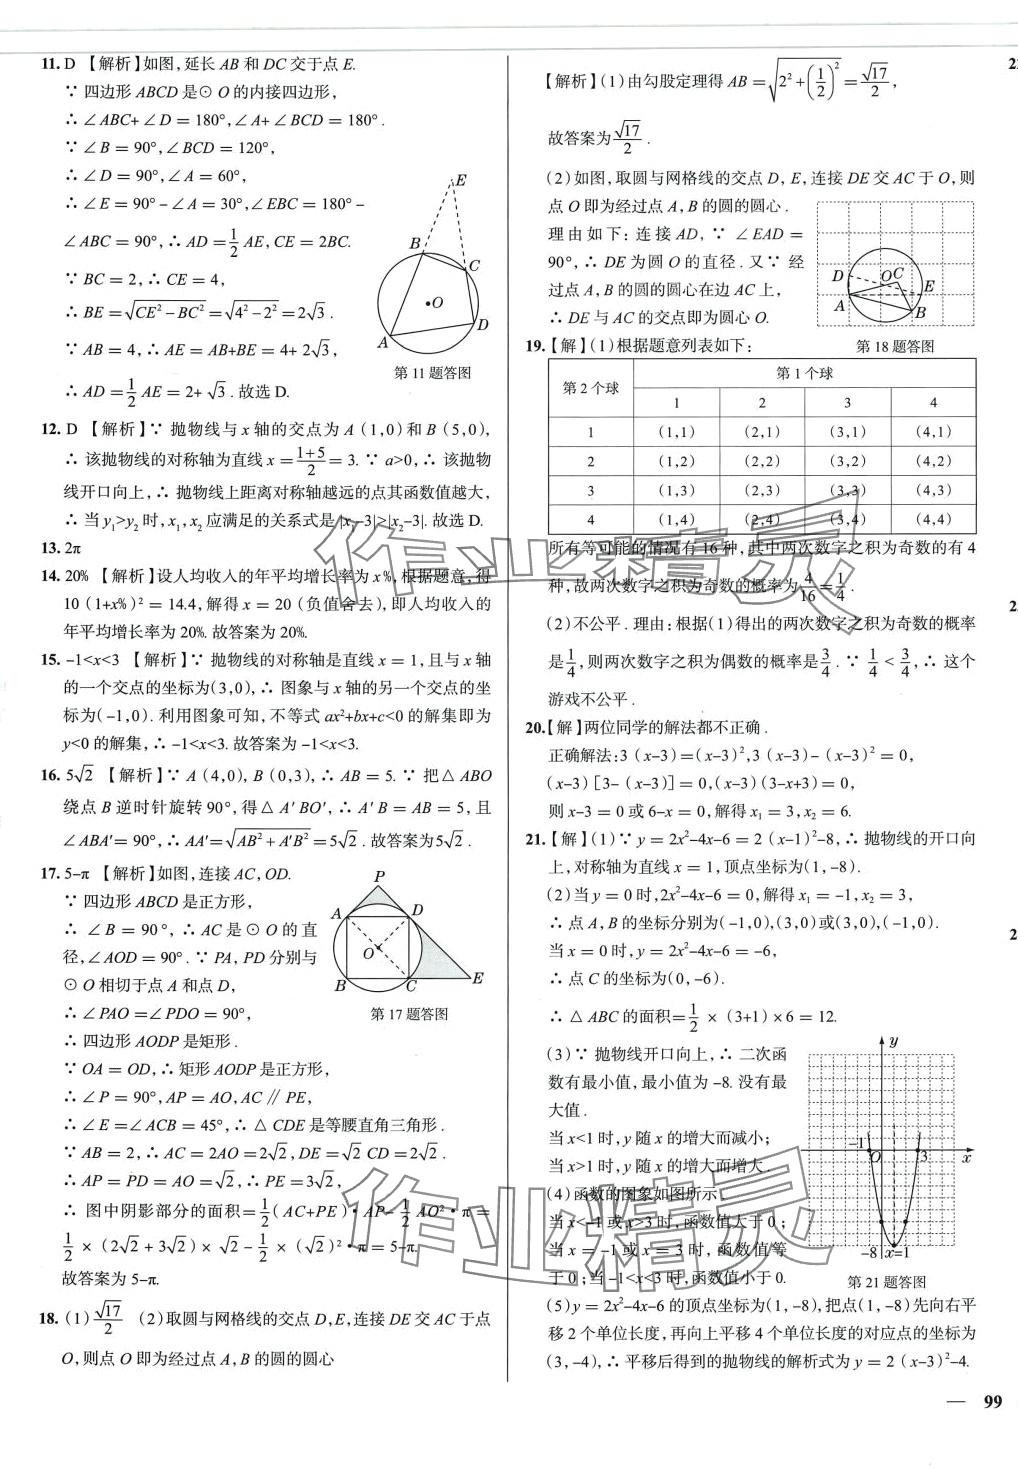 11. D 【解析】如图,延长 AB 和 DC 交于点 E.
∵ 四边形 ABCD 是⊙ O 的内接四边形,
∴ ∠ABC+∠D = 180°,∠A+∠BCD = 180°.
∵ ∠B = 90°,∠BCD = 120°,
∴ ∠D = 90°,∠A = 60°,
∴ ∠E = 90°-∠A = 30°,∠EBC = 180°-
∠ABC = 90°,∴ AD = 1/2 AE, CE = 2BC.
∵ BC = 2,∴ CE = 4,
∴ BE = √(CE²-BC²) = √(4²-2²) = 2√3.
∵ AB = 4,∴ AE = AB+BE = 4+2√3,
∴ AD = 1/2 AE = 2+√3. 故选 D.
E
B
C
O
A
D
第 11 题答图
12. D 【解析】∵ 抛物线与 x 轴的交点为 A (1,0) 和 B (5,0),
∴ 该抛物线的对称轴为直线 x = (1+5)/2 = 3. ∵ a>0,∴ 该抛物
线开口向上,∴ 抛物线上距离对称轴越远的点其函数值越大,
∴ 当 y₁>y₂ 时, x₁, x₂ 应满足的关系式是|x₁-3|>|x₂-3|. 故选 D.
13. 2π
14. 20% 【解析】设人均收入的年平均增长率为 x%,根据题意,得
10 (1+x%)² = 14.4,解得 x = 20 (负值舍去),即人均收入的
年平均增长率为 20%. 故答案为 20%.
15. -1<x<3 【解析】∵ 抛物线的对称轴是直线 x = 1,且与 x 轴
的一个交点的坐标为(3,0),∴ 图象与 x 轴的另一个交点的坐
标为(-1,0). 利用图象可知,不等式 ax²+bx+c<0 的解集即为
y<0 的解集,∴ -1<x<3. 故答案为 -1<x<3.
16. 5√2 【解析】∵ A (4,0), B (0,3),∴ AB = 5. ∵ 把△ABO
绕点 B 逆时针旋转 90°,得△A′BO′,∴ A′B = AB = 5,且
∠ABA′ = 90°,∴ AA′ = √(AB²+A′B²) = 5√2. 故答案为5√2.
17. 5-π 【解析】如图,连接 AC, OD.
∵ 四边形 ABCD 是正方形,
∴ ∠B = 90°,∴ AC 是⊙ O 的直
径,∠AOD = 90°. ∵ PA, PD 分别与
⊙ O 相切于点 A 和点 D,
∴ ∠PAO = ∠PDO = 90°,
∴ 四边形 AODP 是矩形.
∵ OA = OD,∴ 矩形 AODP 是正方形,
∴ ∠P = 90°, AP = AO, AC ∥ PE,
∴ ∠E = ∠ACB = 45°,∴ △CDE 是等腰直角三角形.
∵ AB = 2,∴ AC = 2AO = 2√2, DE = √2 CD = 2√2,
∴ AP = PD = AO = √2,∴ PE = 3√2,
∴ 图中阴影部分的面积 = 1/2 (AC+PE)·AP-1/2 AO²·π =
1/2 × (2√2+3√2) × √2-1/2 × (√2)²·π = 5-π.
故答案为 5-π.
P
A
D
O
B
C
E
第 17 题答图
18. (1) √17/2 (2)取圆与网格线的交点 D, E,连接 DE 交 AC 于点
O,则点 O 即为经过点 A, B 的圆的圆心
【解析】(1)由勾股定理得 AB = √(2²+(1/2)²) = √17/2,
故答案为 √17/2.
(2)如图,取圆与网格线的交点 D, E,连接 DE 交 AC 于 O,则
点 O 即为经过点 A, B 的圆的圆心.
理由如下:连接 AD,∵ ∠EAD =
90°,∴ DE 为圆 O 的直径. 又∵ 经
过点 A, B 的圆的圆心在边 AC 上,
∴ DE 与 AC 的交点即为圆心 O.
D
O
C
E
A
B
第 18 题答图
19.【解】(1)根据题意列表如下:
第 2 个球 第 1 个球
1 2 3 4
1 (1,1) (2,1) (3,1) (4,1)
2 (1,2) (2,2) (3,2) (4,2)
3 (1,3) (2,3) (3,3) (4,3)
4 (1,4) (2,4) (3,4) (4,4)
所有等可能的情况有 16 种,其中两次数字之积为奇数的有 4
种,故两次数字之积为奇数的概率为 4/16 = 1/4.
(2)不公平. 理由:根据(1)得出的两次数字之积为奇数的概率
是 1/4,则两次数字之积为偶数的概率是 3/4. ∵ 1/4 < 3/4,∴ 这个
游戏不公平.
20.【解】两位同学的解法都不正确.
正确解法:3 (x-3) = (x-3)², 3 (x-3) - (x-3)² = 0,
(x-3) [3- (x-3)] = 0, (x-3) (3-x+3) = 0,
则 x-3 = 0 或 6-x = 0,解得 x₁ = 3, x₂ = 6.
21.【解】(1)∵ y = 2x²-4x-6 = 2 (x-1)²-8,∴ 抛物线的开口向
上,对称轴为直线 x = 1,顶点坐标为(1,-8).
(2)当 y = 0 时, 2x²-4x-6 = 0,解得 x₁ = -1, x₂ = 3,
∴ 点 A, B 的坐标分别为(-1,0),(3,0)或(3,0),(-1,0).
当 x = 0 时, y = 2x²-4x-6 = -6,
∴ 点 C 的坐标为(0,-6).
∴ △ABC 的面积 = 1/2 × (3+1) × 6 = 12.
(3)∵ 抛物线开口向上,∴ 二次函
数有最小值,最小值为 -8. 没有最
大值.
当 x<1 时, y 随 x 的增大而减小;
当 x>1 时, y 随 x 的增大而增大.
(4)函数的图象如图所示.
当 x<-1 或 x>3 时,函数值大于 0;
当 x = -1 或 x = 3 时,函数值等
于 0;当 -1<x<3 时,函数值小于 0.
y
-1
O
3
x
-8
x=1
第 21 题答图
(5) y = 2x²-4x-6 的顶点坐标为(1,-8),把点(1,-8)先向右平
移 2 个单位长度,再向上平移 4 个单位长度的对应点的坐标为
(3,-4),∴ 平移后得到的抛物线的解析式为 y = 2 (x-3)²-4.
作业精灵
作业精灵
— 99